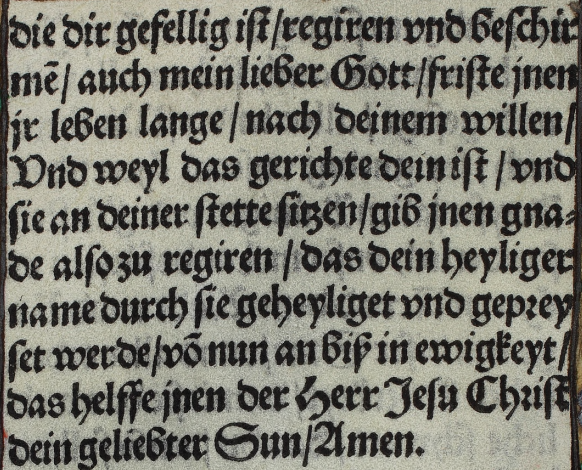 die dir gefellig ist/regiren vnd beschir
mē/ auch mein lieber Gott/friste jnen
jr leben lange/ nach deinem willen/
Vnd weyl das gerichte dein ist/ vnd
sie an deiner stette sitzen/gib jnen gna⸗
de also zu regiren/ das dein heyliger
name durch sie geheyliget vnd geprey
set werde/vō nun an biß in ewigkeyt/
das helffe jnen der Herr Jesu Christ
dein geliebter Sun/Amen.